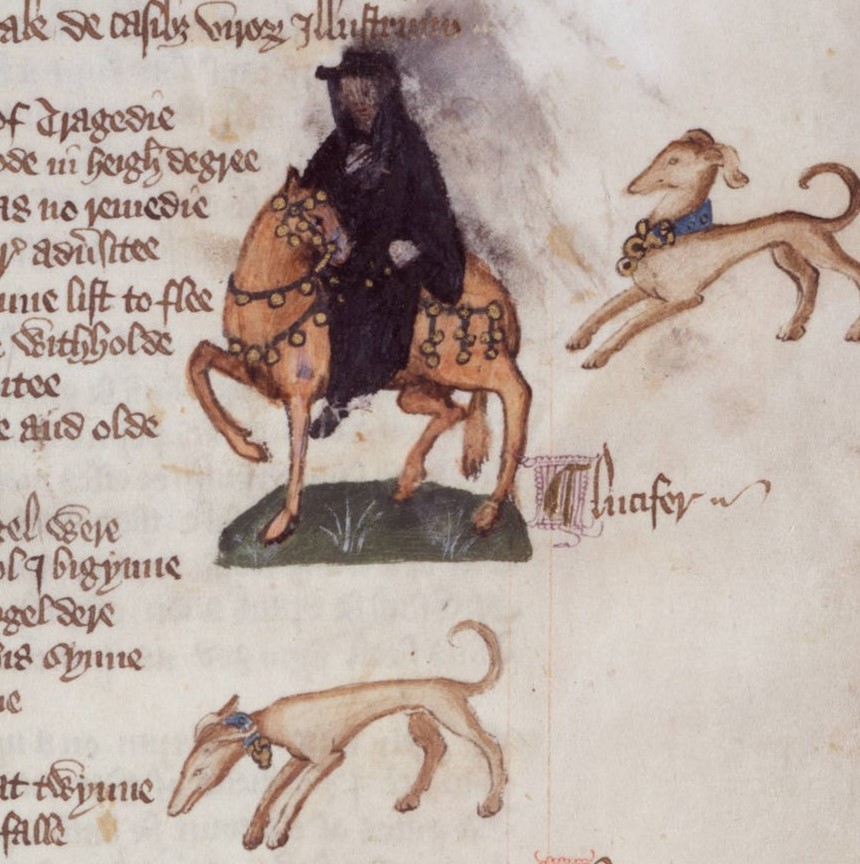 ale de casibȝ viroꝝ Illustrium
of Tragedie
ode in heigh degree
as no remedie
adũsitee
une list to flee
withholde
itee
e and olde
¶ lucifer
tel were
ol ⁊ bigynne
ngel dere
his synne
ne
at twynne
falle